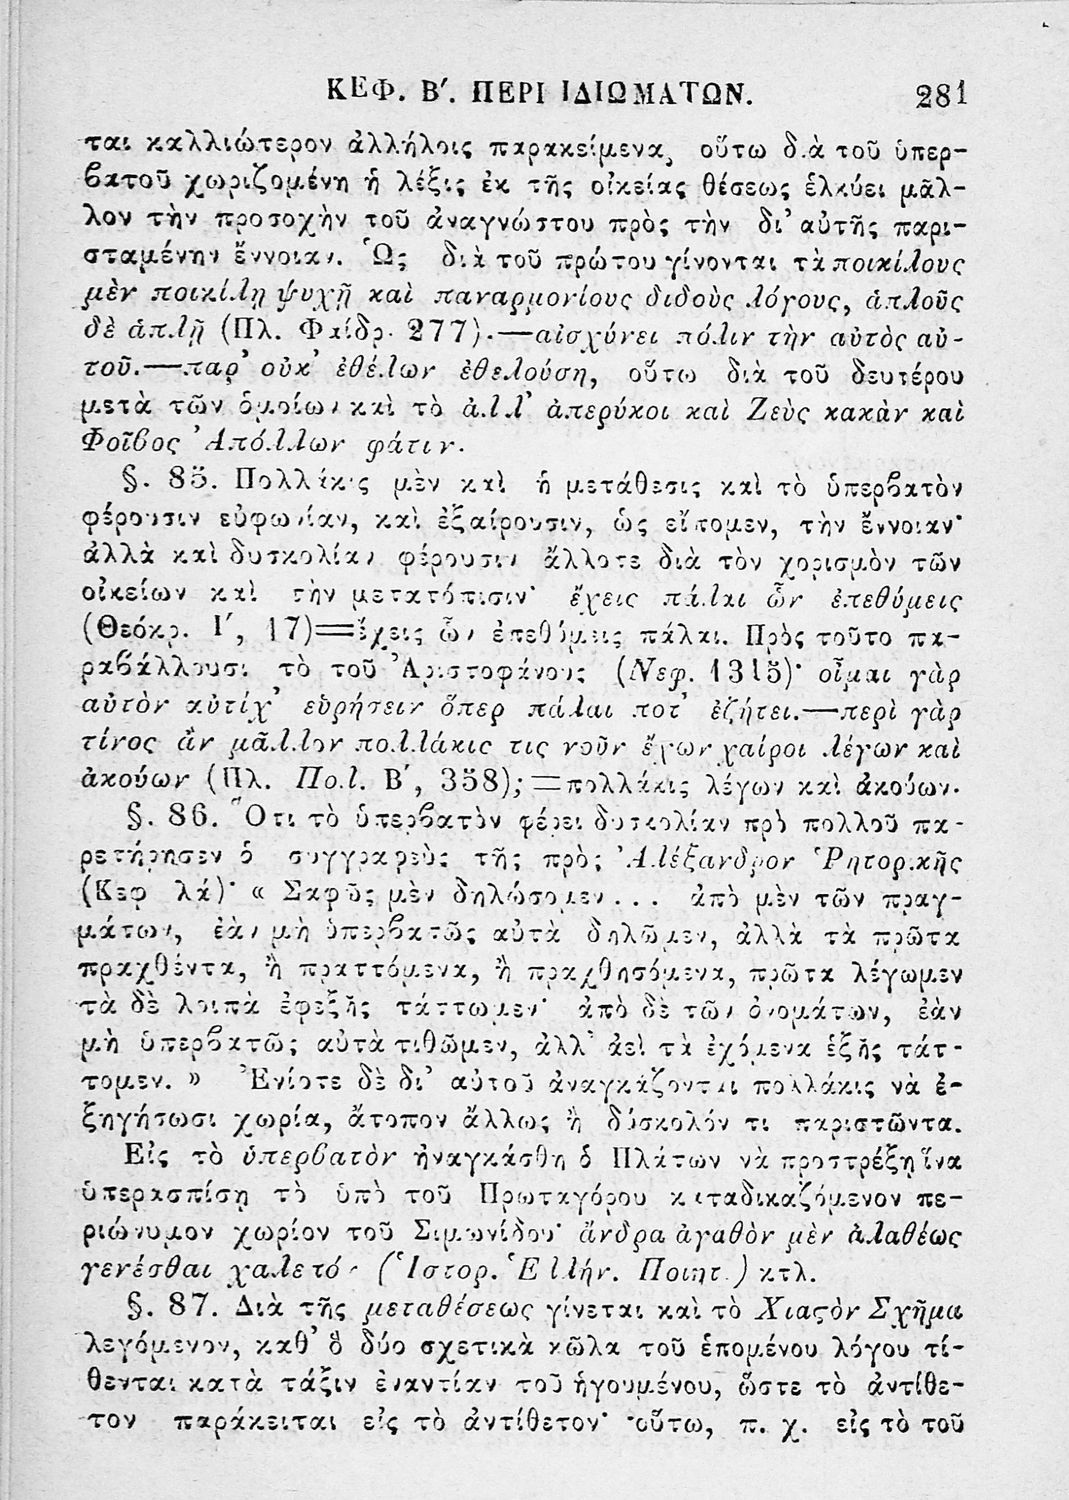 ΚΕΦ. Β′. ΠΕΡΙ ΙΔΙΩΜΑΤΩΝ. 281
ται καλλιώτερον ἀλλήλοις παρακείμενα, οὕτω διὰ τοῦ ὑπερ-
βατοῦ χωριζομένη ἡ λέξις ἐκ τῆς οἰκείας θέσεως ἑλκύει μᾶλ-
λον τὴν προσοχὴν τοῦ ἀναγνώστου πρὸς τὴν δι’ αὐτῆς παρι-
σταμένην ἔννοιαν. Ὡς διὰ τοῦ πρώτου γίνονται τὰ ποικίλους
μὲν ποικίλῃ ψυχῇ καὶ παναρμονίους διδοὺς λόγους, ἁπλοῦς
δὲ ἁπλῇ (Πλ. Φαίδρ. 277).—αἰσχύνει πόλιν τὴν αὐτὸς αὑ-
τοῦ.—παρ’ οὐκ’ ἐθέλων ἐθελούσῃ, οὕτω διὰ τοῦ δευτέρου
μετὰ τῶν ὁμοίων καὶ τὸ ἀλλ’ ἀπερύκοι καὶ Ζεὺς κακὰν καὶ
Φοῖβος Ἀπόλλων φάτιν.
§. 85. Πολλάκις μὲν καὶ ἡ μετάθεσις καὶ τὸ ὑπερβατὸν
φέρουσιν εὐφωνίαν, καὶ ἐξαίρουσιν, ὡς εἴπομεν, τὴν ἔννοιαν·
ἀλλὰ καὶ δυσκολίαν φέρουσιν ἄλλοτε διὰ τὸν χορισμὸν τῶν
οἰκείων καὶ τὴν μετατόπισιν· ἔχεις πάλαι ὧν ἐπεθύμεις
(Θεόκρ. Ι′, 17)=ἔχεις ὧν ἐπεθύμεις πάλαι. Πρὸς τοῦτο πα-
ραβάλλουσι τὸ τοῦ Ἀριστοφάνους (Νεφ. 1315)· οἶμαι γὰρ
αὐτὸν αὐτίχ’ εὑρήσειν ὅπερ πάλαι ποτ’ ἐζήτει.—περὶ γὰρ
τίνος ἂν μᾶλλον πολλάκις τις νοῦν ἔχων χαίροι λέγων καὶ
ἀκούων (Πλ. Πολ. Β′, 358);=πολλάκις λέγων καὶ ἀκούων.
§. 86. Ὅτι τὸ ὑπερβατὸν φέρει δυσκολίαν πρὸ πολλοῦ πα-
ρετήρησεν ὁ συγγραφεὺς τῆς πρὸς Ἀλέξανδρον Ῥητορικῆς
(Κεφ λά)· « Σαφῶς μὲν δηλώσομεν... ἀπὸ μὲν τῶν πραγ-
μάτων, ἐὰν μὴ ὑπερβατῶς αὐτὰ δηλῶμεν, ἀλλὰ τὰ πρῶτα
πραχθέντα, ἢ πραττόμενα, ἢ πραχθησόμενα, πρῶτα λέγωμεν
τὰ δὲ λοιπὰ ἐφεξῆς τάττωμεν· ἀπὸ δὲ τῶν ὀνομάτων, ἐὰν
μὴ ὑπερβατῶς αὐτὰ τιθῶμεν, ἀλλ’ ἀεὶ τὰ ἐχόμενα ἑξῆς τάτ-
τομεν. » Ἐνίοτε δὲ δι’ αὐτοῦ ἀναγκάζονται πολλάκις νὰ ἐ-
ξηγήσωσι χωρία, ἄτοπον ἄλλως ἢ δύσκολόν τι παριστῶντα.
Εἰς τὸ ὑπερβατὸν ἠναγκάσθη ὁ Πλάτων νὰ προστρέξῃ ἵνα
ὑπερασπίσῃ τὸ ὑπὸ τοῦ Πρωταγόρου καταδικαζόμενον πε-
ριώνυμον χωρίον τοῦ Σιμωνίδου· ἄνδρα ἀγαθὸν μὲν ἀλαθέως
γενέσθαι χαλετόν (Ἱστορ. Ἑλλήν. Ποιητ.) κτλ.
§. 87. Διὰ τῆς μεταθέσεως γίνεται καὶ τὸ Χιαςὸν Σχῆμα
λεγόμενον, καθ’ ὃ δύο σχετικὰ κῶλα τοῦ ἑπομένου λόγου τί-
θενται κατὰ τάξιν ἐναντίαν τοῦ ἡγουμένου, ὥστε τὸ ἀντίθε-
τον παράκειται εἰς τὸ ἀντίθετον· οὕτω, π. χ. εἰς τὸ τοῦ